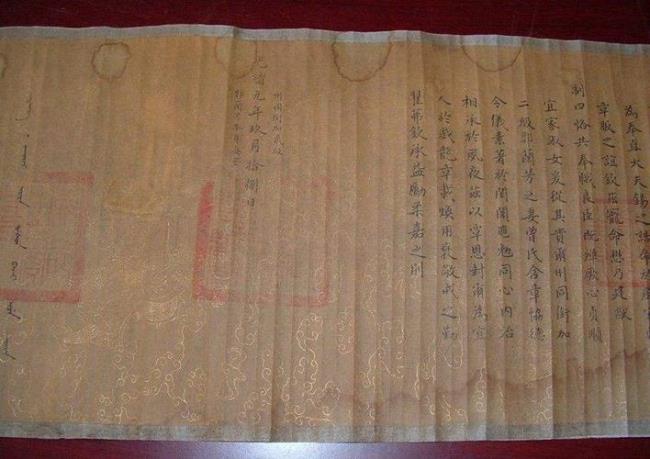 為奉直大夫錫之誥命於戲
章服之誼欽茲寵命懋乃猷
制曰恪共奉職良臣既殫厥心貞順
宜家淑女爰從其貴爾州同銜加
二級郭蘭芳之妻曾氏含章協德
令儀素著於閨闈黽勉同心內治
相承於夙夜茲以覃恩封爾為宜
人於戲龍章載煥用褒敬戒之勤
翟茀欽承益勵柔嘉之則
州同銜加貳級
光緒元年玖月拾捌日